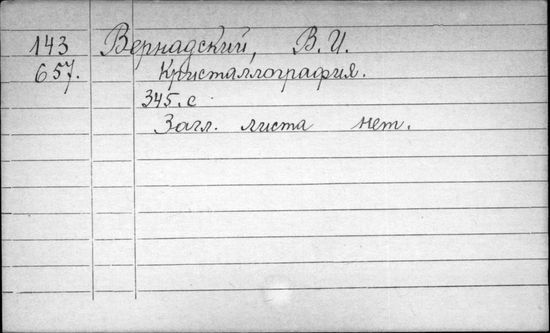 143 Вернадский, В. И.
657. Кристаллография.
345. с
Загл. листа нет.